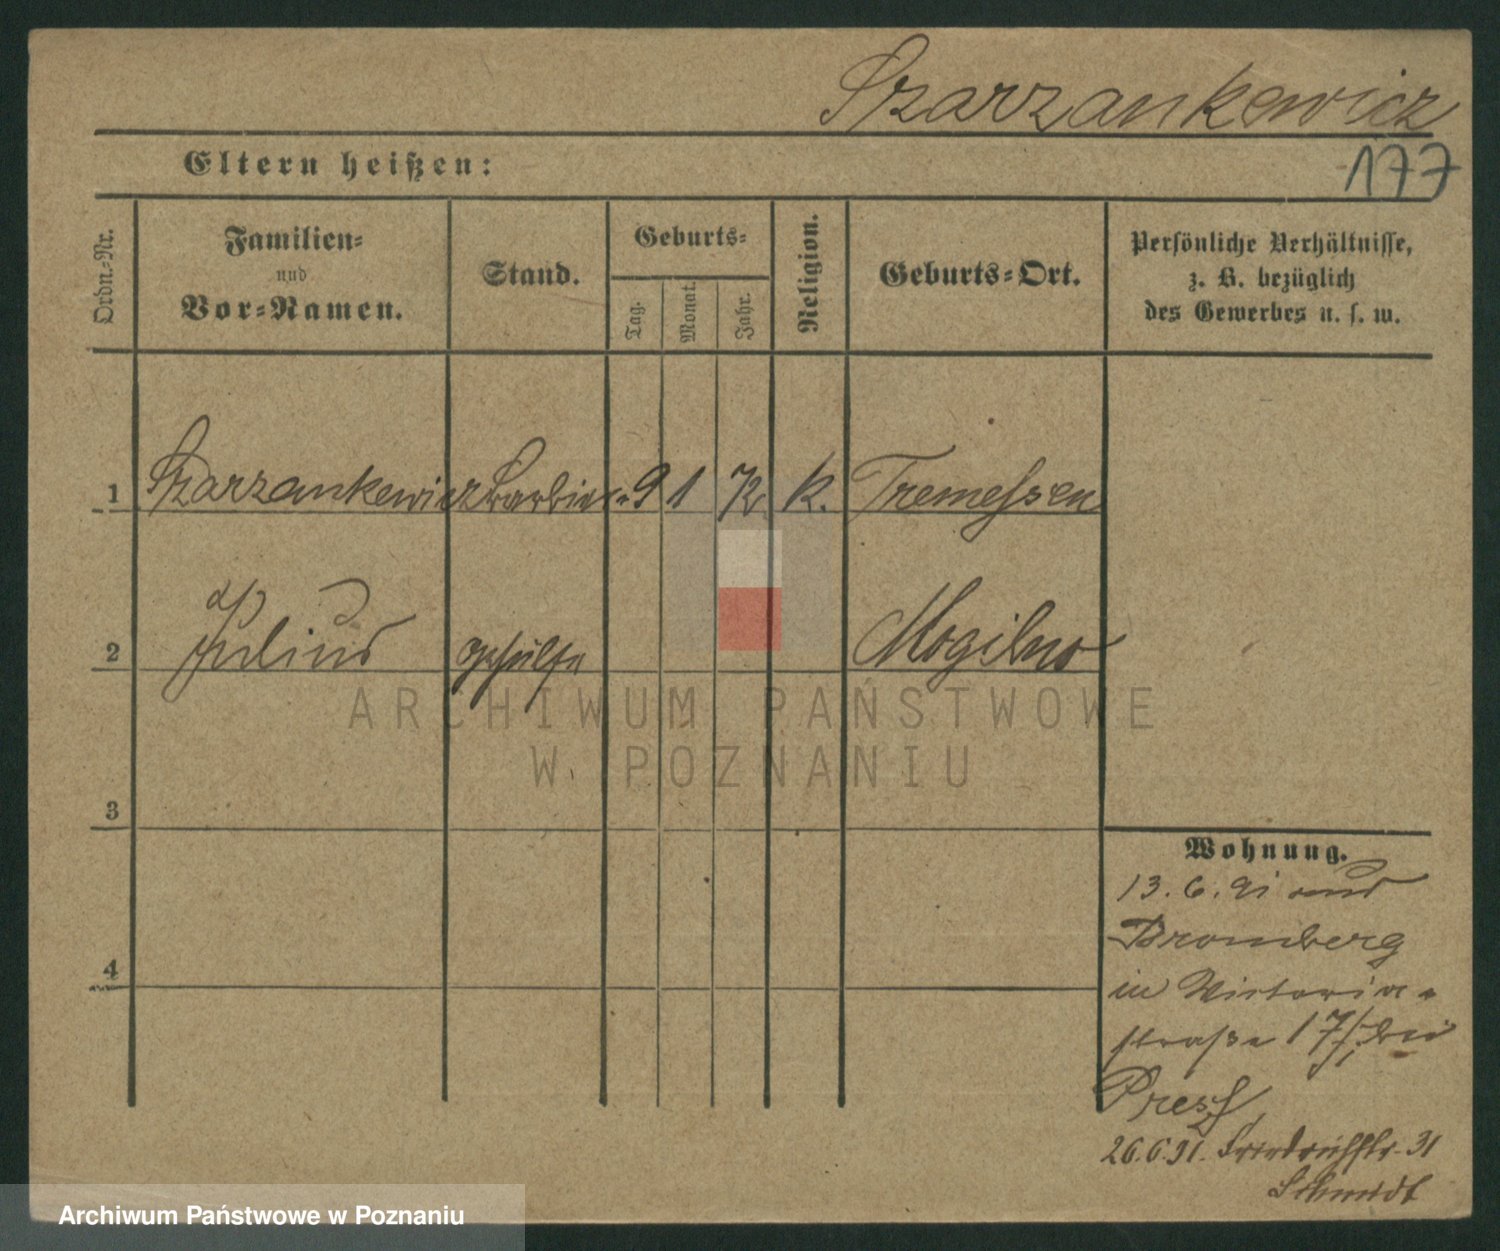 Szarzankewicz
Eltern heißen:
177
Ordn.-Nr.
Familien-
und
Vor-Namen.
Stand.
Geburts-
Tag.
Monat.
Jahr.
Religion.
Geburts-Ort.
Persönliche Verhältnisse,
z. B. bezüglich
des Gewerbes u. s. w.
1 Szarzankewicz Barbier- 9 1 72 K. Tremessen
2 Julius gehülfe Mogilno
ARCHIWUM PAŃSTWOWE
W POZNANIU
3
4
Wohnung.
13.6.91 aus
Bromberg
in Victoria-
straße 17/I. bei
26.6.91. Friedrichstr. 31
Schmidt
Archiwum Państwowe w Poznaniu